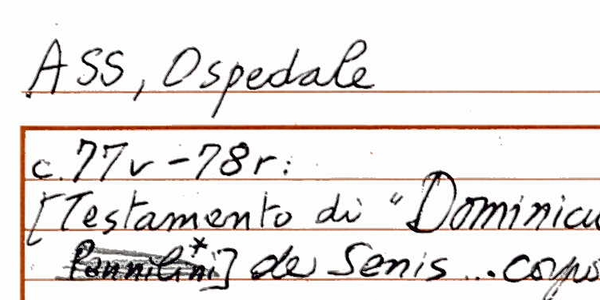 ASS, Ospedale
c.77v-78r:
[Testamento di "Dominicu
de Senis ... corpo